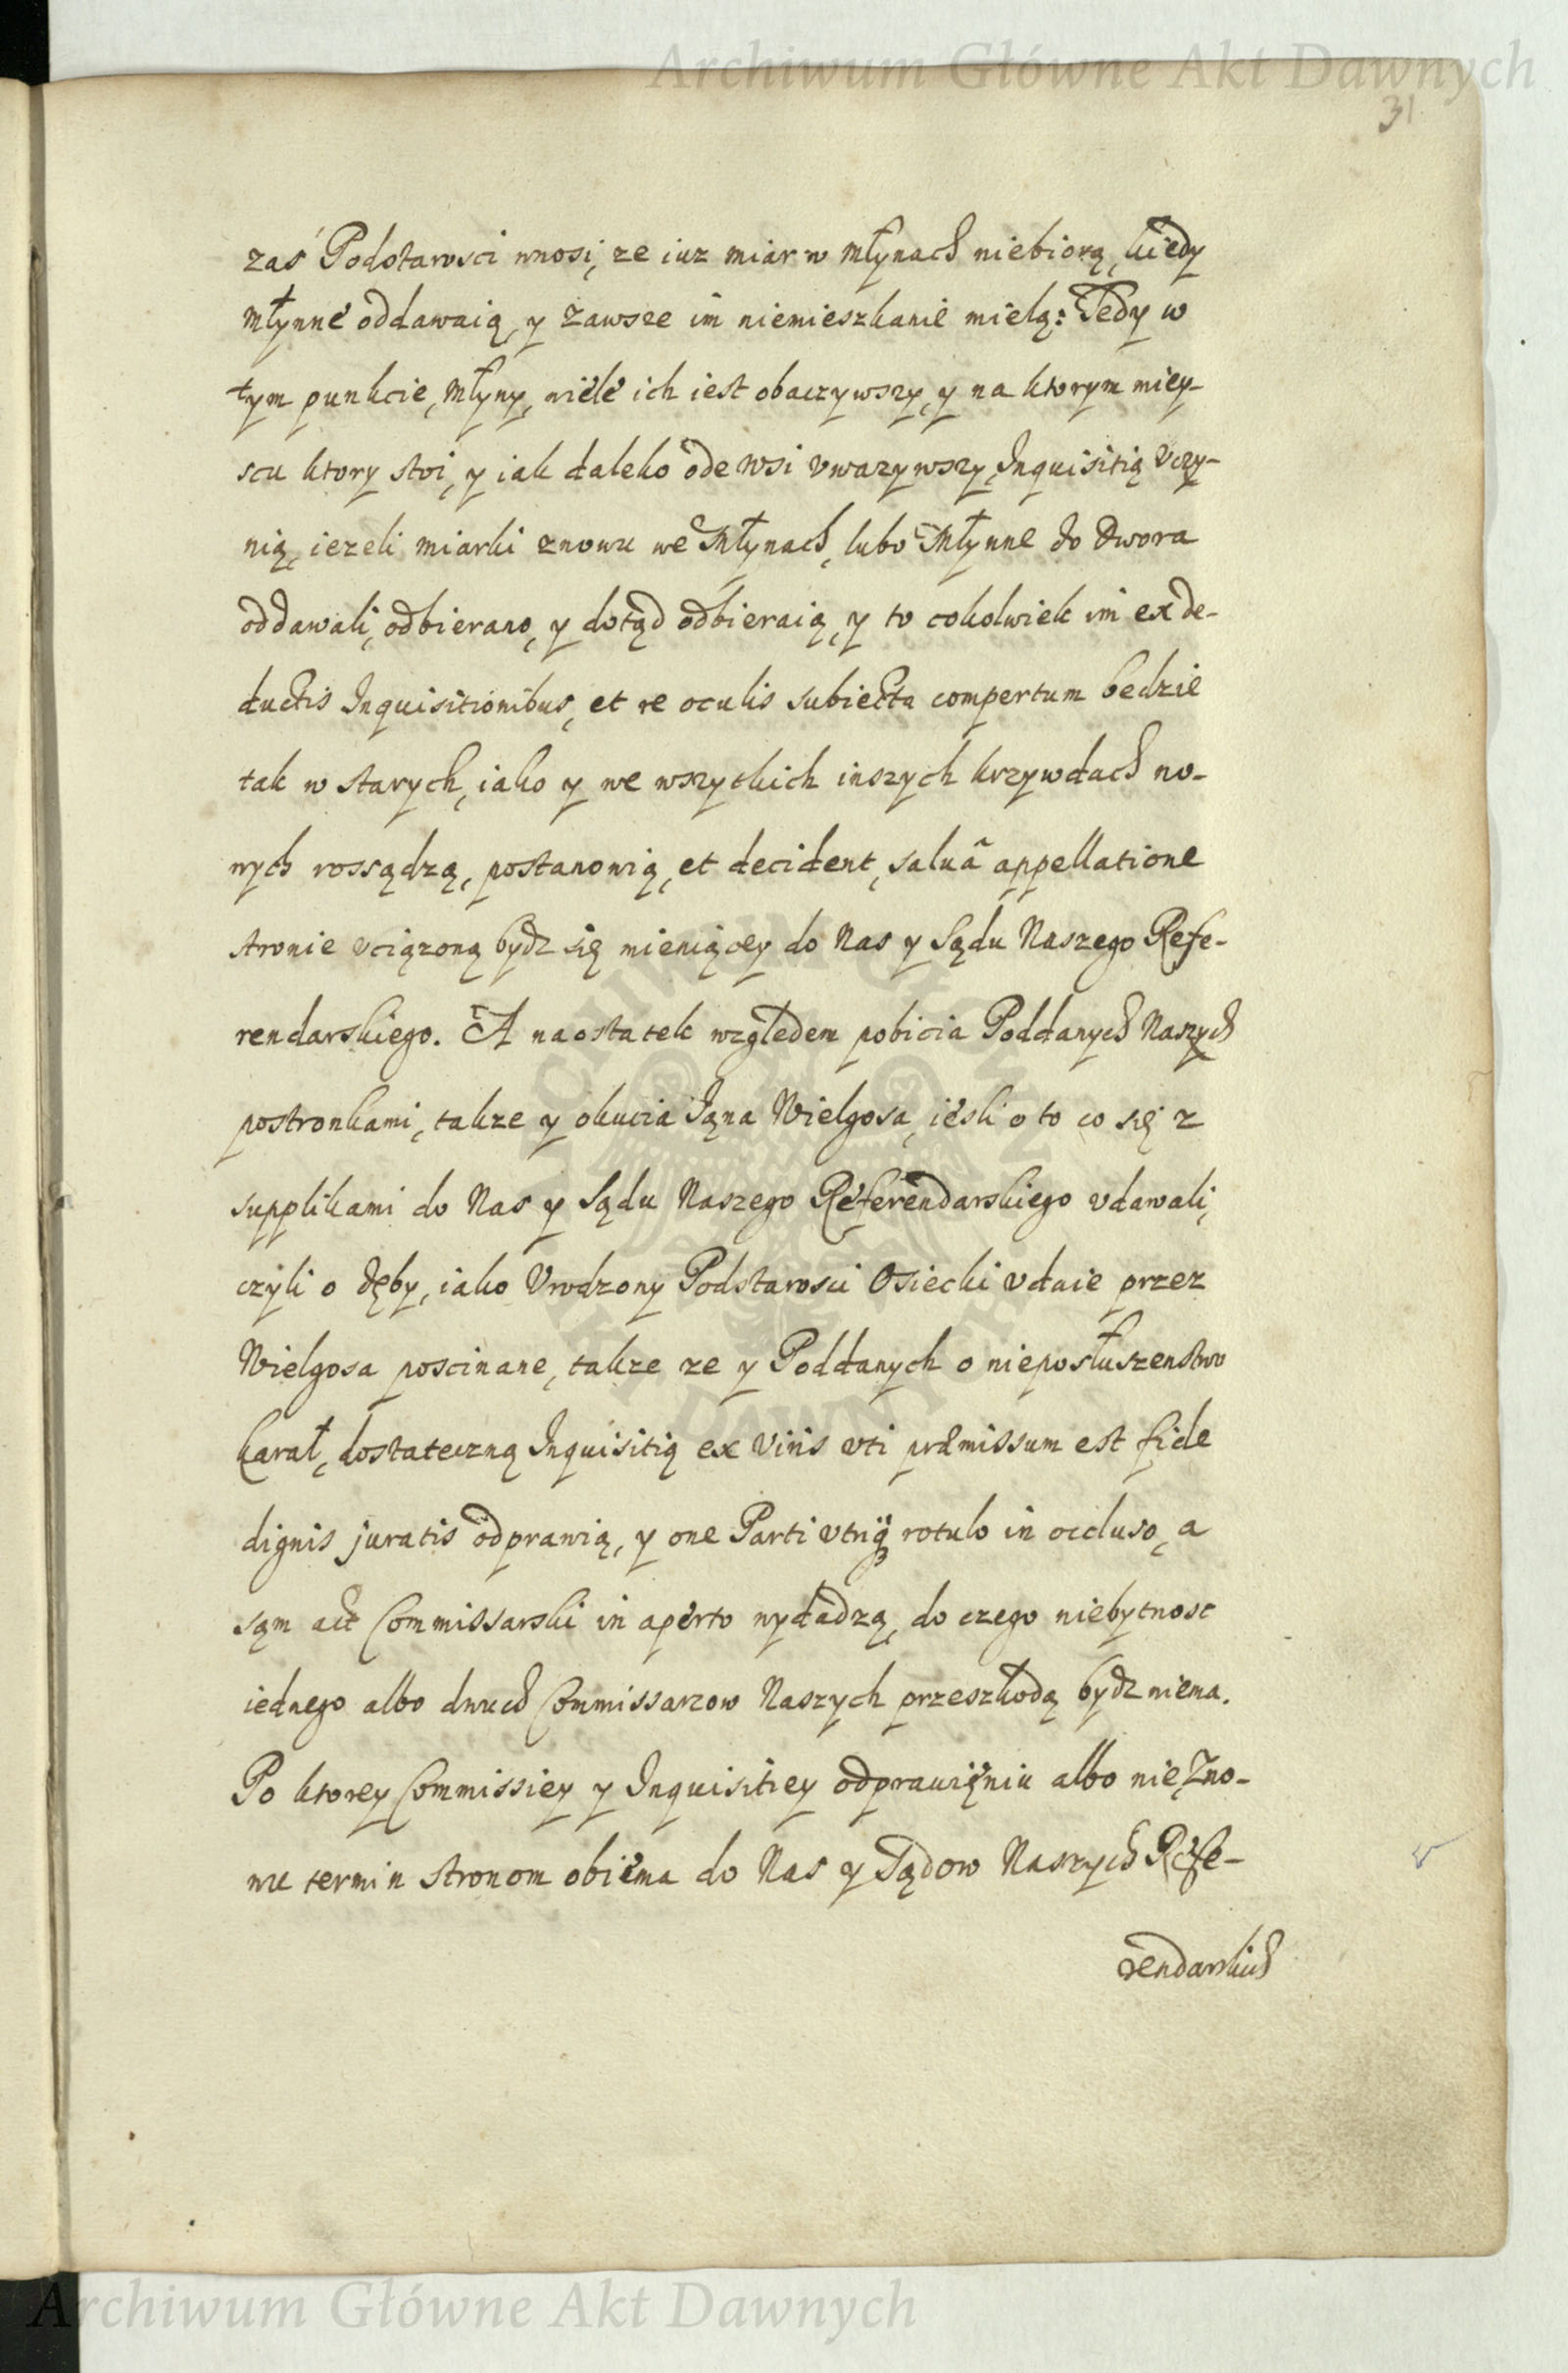 Archiwum Główne Akt Dawnych
31
zaś Podstarosci wnosi, ze iuz miar w młynach niebiorą, kiedy
młynné oddawaią, y zawsze im niemieszkanie mielą: Tedy w
tym punkcie, młyny, wiele ich iest obaczywszy, y na ktorym miey-
scu ktory stoi, y iak daleko ode wsi vwazywszy, Inquisitią vczy-
nią, iezeli miarki znowu we Młynach, lubo Młynne do Dwora
oddawali, odbierano, y dotąd odbieraią, y to cokolwiek im ex de-
ductis Inquisitionibus, et re oculis subiecta compertum bedzie
tak w starych, iako y we wszytkich inszych krzywdach no-
wych rossądzą, postanowią, et decident, saluâ appellatione
stronie vciązoną bydz się mieniącey do Nas y Sądu Naszego Refe-
rendarskiego. A naostatek względem pobicia Poddanych Naszych
postronkami, takze y okucia Iąna Wielgosa, iesli o to co się z
supplikami do Nas y Sądu Naszego Referendarskiego vdawali,
czyli o dęby, iako Vrodzony Podstarosci Osiecki vdaie przez
Wielgosa poscinane, takze ze y Poddanych o nieposłuszenstwo
karał, dostateczną Inquisitią ex viris vti præmissum est fide
dignis juratis odprawią, y one Parti vtriq́ rotulo in occluso, a
sąm act Commissarski in aperto wydadzą, do czego niebytnosc
iednego albo dwuch Commissarzow Naszych przeszkodą bydz niema.
Po ktorey Commissiey y Inquisitiey odprawięniu albo nię Zno-
wu termin stronom obiema do Nas y Sądow Naszych Refe-
rendarskich
ARCHIWUM GŁÓWNE AKT DAWNYCH
Archiwum Główne Akt Dawnych